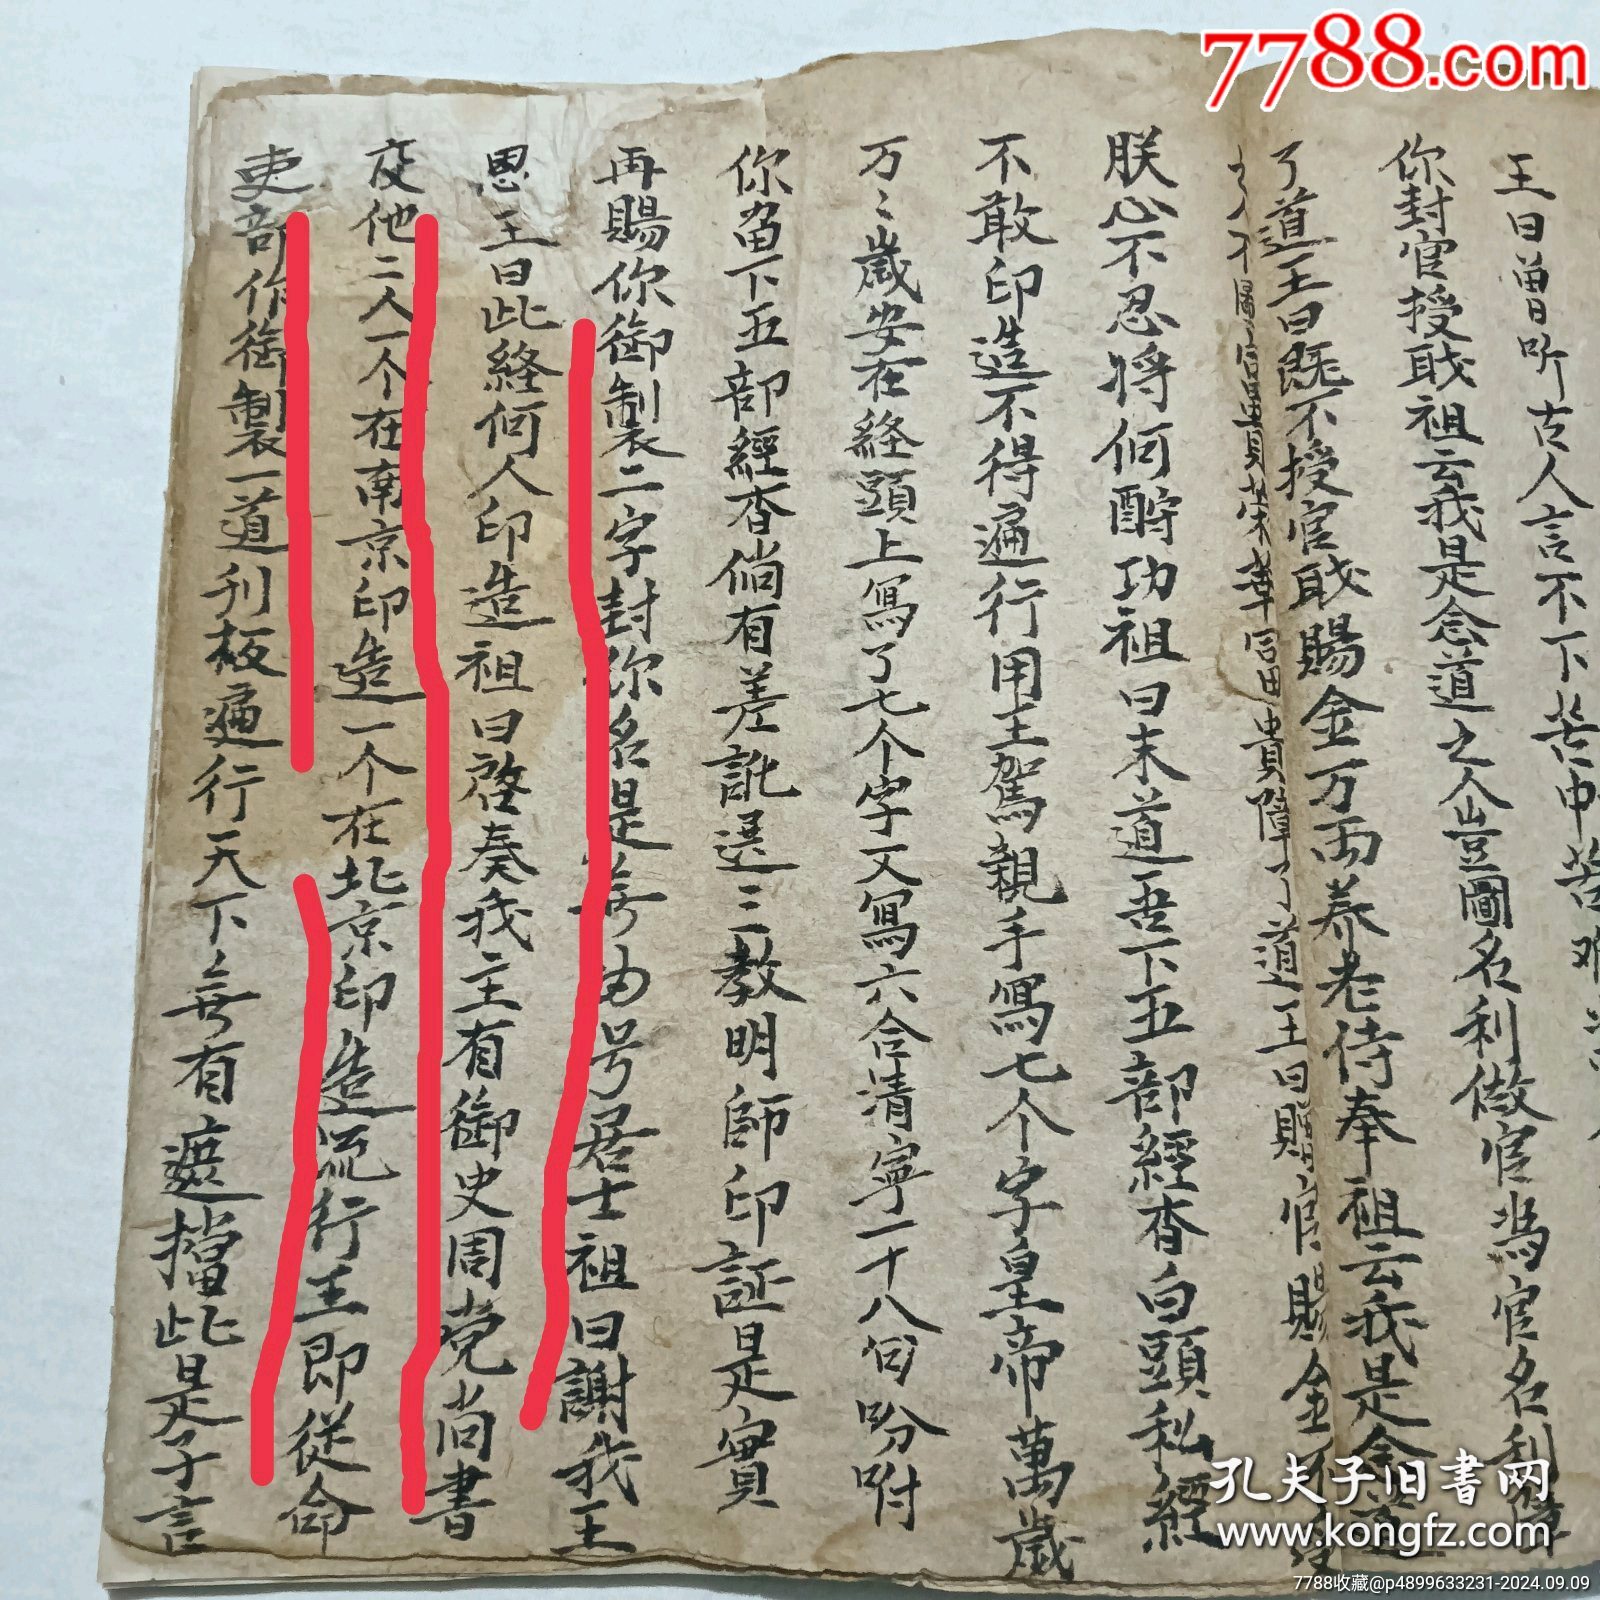 7788.com
王曰曾听古人言不下苦中苦难
你封官授職祖云我是念道之人豈圖名利做官為官名利障
了道王曰既不授官職賜金万両养老侍奉祖云我是念道
之人不圖富貴荣華同田貴障了道王曰賜官賜金不
朕心不忍将何酧功祖曰末道吾下五部經杳白頭私經
不敢印造不得遍行用王駕親手寫七个字皇帝萬歲
万〻歲安在経頭上寫了七个字又寫六合清寧一十八句吩咐
你畱下五部經杳倘有差訛選三教明師印証是實
再賜你御製二字封你名是無为号居士祖曰謝我王
恩王曰此経何人印造祖曰啓奏我主有御史周党尚書
皮他二人一个在南京印造一个在北京印造流行王即從命
吏部作御製一道刋板遍行天下無有遮擋此是子言
孔夫子旧書网
www.kongfz.com
7788收藏@p4899633231-2024.09.09